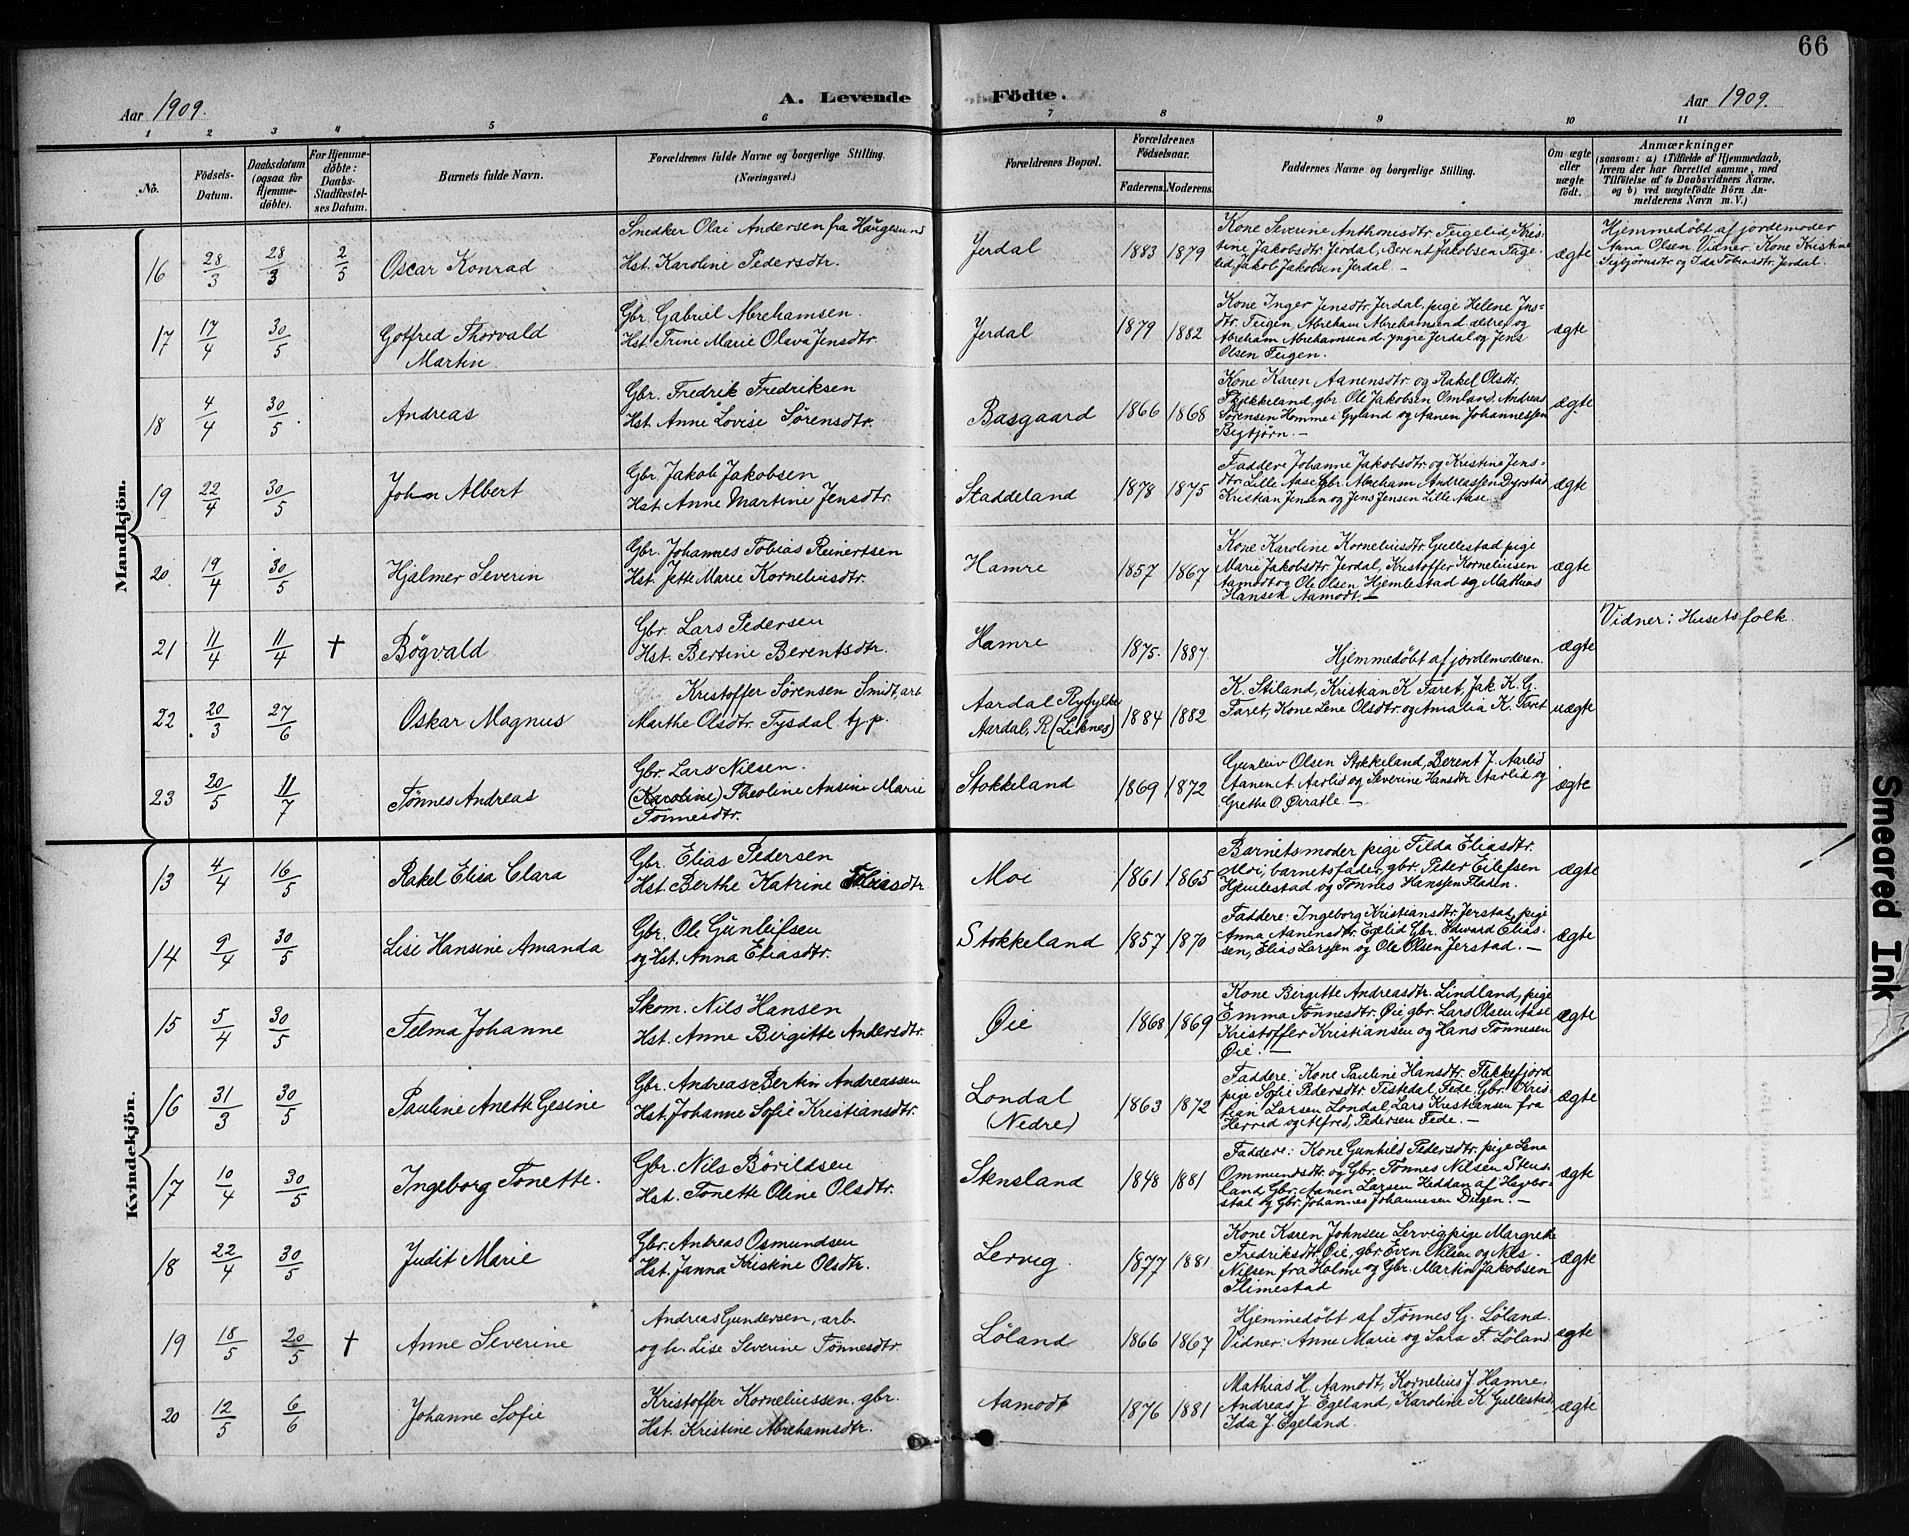 66
Aar 1909.
A. Levende Födte.
Aar 1909.
1 2 3 4 5 6 7 8 9 10 11
No.
Födsels-
Datum.
Daabsdatum
(ogsaa for
Hjemme-
döbte).
For Hjemme-
döbte:
Daabs-
Stadfæstel-
ses Datum.
Barnets fulde Navn.
Forældrenes fulde Navne og borgerlige Stilling.
(Næringsvei.)
Forældrenes Bopæl.
Forældrenes
Födselsaar.
Faderens. Moderens.
Faddernes Navne og borgerlige Stilling.
Om ægte
eller
uægte
födt.
Anmærkninger
(saasom: a) i Tilfælde af Hjemmedaab,
hvem der har forrettet samme, med
Tilföielse af to Daabsvidners Navne,
og b) ved uægtefödte Börn An-
melderens Navn m. V.)
Mandkjön.
16 28/3 28/3 2/5 Oscar Konrad
Snedker Olai Andersen fra Haugesund
Hst. Karoline Pedersdtr.
Jerdal 1883 1879
Kone Severine Anthonisdtr. Feigelid, Kris-
tine Jakobsdtr. Jerdal, Berent Jakobsen Feige-
lid, Jakob Jakobsen Jerdal –
ægte
Hjemmedøbt af jordemoder
Anna Olsen. Vidner: Kone Kristine
Sigbjørnsdtr og Ida Tobiasdtr. Jerdal.
17 17/4 30/5 Gotfred Thorvald
Martin
Gbr. Gabriel Abrehamsen.
Hst. Trine Marie Olava Jensdtr.
Jerdal 1879 1882
Kone Inger Jensdtr. Jerdal, pige Helene Jens-
dtr. Feigen, Abreham Abrehamsen d. ældre og
Abreham Abrehamsen d. yngre Jerdal og Jens
Olsen Feigen.
ægte
18 4/4 30/5 Andreas
Gbr. Fredrik Fredriksen
Hst. Anne Lovise Sørensdtr.
Basgaard 1866 1868
Kone Karen Aanensdtr. og Rakel Olsdtr.
gbr. Ole Jakobsen Omland, Andreas
Sørensen Homme i Gyland og Aanen Johannessen
Bigtjørn. –
ægte
19 22/4 30/5 John Albert
Gbr. Jakob Jakobsen
Hst. Anne Martine Jensdtr.
Staddeland 1878 1875
Faddere Johanne Jakobsdtr. og Kristine Jens-
dtr. Lille Aase, Gbr. Abreham Andreassen Dyrstad
Kristian Jensen og Jens Jensen Lille Aase
ægte
20 19/4 30/5 Hjalmer Severin
Gbr. Johannes Tobias Reinertsen
Hst. Jette Marie Korneliusdtr.
Hamre 1857 1867
Kone Karoline Korneliusdtr. Gullestad pige
Marie Jakobsdtr. Jerdal, Kristoffer Korneliusen
Aamodt og Ole Olsen Hjemlestad og Mathias
Hansen Aamodt. –
ægte
21 11/4 11/4 † Bøgvald
Gbr. Lars Pedersen
Hst. Bertine Berentsdtr.
Hamre 1875. 1887.
Hjemmedøbt af jordemoderen.
ægte
Vidner: Husets folk.
22 20/3 27/6 Oskar Magnus
Kristoffer Sørensen Smidt, arb
Marthe Olsdtr. Tysdal tj. p.
Aardal Ryfylke
Aardal, R. (Liknes)
1884 1882
K. Stiland, Kristian K. Faret, Jak. K. G.
Faret, Kone Lene Olsdtr. og Amalia K. Faret
uægte
23 20/5 11/7 Tønnes Andreas
Gbr. Lars Nilsen.
(Karoline) Theoline Ansine Marie
Tønnesdtr.
Stokkeland 1869 1872
Gunluiv Olsen Stokkeland, Berent J. Aarlid
Aanen A. Aarlid og Severine Hansdtr Aarlid og
Grethe O. Øvratle –
ægte
Kvindekjön.
13 4/4 16/5 Rakel Elisa Clara
Gbr. Elias Pedersen
Hst. Berthe Katrine
Moi 1861 1865
Barnets moder pige Tilda Eliasdtr.
Moi, barnets fader, gbr. Peter Eilefsen
Hjemlestad og Tønnes Hanssen Fladen.
ægte
14 9/4 30/5 Lise Hansine Amanda
Gbr. Ole Gunleifsen
og Hst. Anna Eliasdtr.
Stokkeland 1857 1870
Faddere: Ingeborg Kristiansdtr. Jerstad, pige
Anna Aanensdtr. Egelid Gbr. Edward Elias-
sen, Elias Larssen og Ole Olsen Jerstad. –
ægte
15 5/4 30/5 Telma Johanne
Skom. Nils Hansen
Hst. Anne Birgitte Andersdtr.
Øie 1868 1869
Kone Birgitte Andreasdtr. Lindland, pige
Emma Tønnesdtr. Øie gbr. Lars Olsen Aase
Kristoffer Kristiansen og Hans Tønnesen
Øie. –
ægte
16 31/3 30/5 Pauline Anette Gesine
Gbr. Andreas Bertin Andreassen
Hst. Johanne Sofie Kristiansdtr.
Londal
(Nedre)
1863 1872
Faddere: Kone Pauline Hansdtr. Flekkefjord
pige Sofie Pedersdtr. Tistedal, Fede, Gbr. Kris-
tian Larsen Londal, Lars Kristiansen fra
Herred og Alfred Pedersen Fede. –
ægte
17 10/4 30/5 Ingeborg Tonette.
Gbr. Nils Børildsen
Hst. Tonette Oline Olsdtr.
Stensland 1848 1881
Faddere: Kone Gunhild Pedersdtr, pige Lena
Ommundsdtr. og Gbr. Tønnes Nilsen Stens-
land Gbr. Aanen Larsen Heddan af Hægebo-
stad og Gbr. Johannes Johannesen Dugen. –
ægte
18 22/4 30/5 Judit Marie
Gbr. Andreas Osmundsen
Hst. Janna Kristine Olsdtr.
Lervig. 1877 1881
Kone Karen Johnsen Lervig, pige Margrete
Fredriksdtr. Øie, gbr. Even Nilsen og Nils
Nilsen fra Holme og Gbr. Martin Jakobsen
Slimestad
ægte
19 18/5 20/5 † Anne Severine
Andreas Gundersen, arb.
og h. Lise Severine Tønnesdtr.
Løland 1866 1867
Hjemmedøbt af Tønnes G. Løland.
Vidner: Anne Marie og Sara T. Løland
ægte
20 12/5 6/6 Johanne Sofie
Kristoffer Korneliussen, gbr.
Hst. Kristine Abrehamsdtr.
Aamodt 1876 1881
Mathias H. Aamodt, Kornelius J. Hamre,
Andreas J. Egeland, Karoline K. Gullestad
Ida J. Egeland.
ægte
Smeared Ink